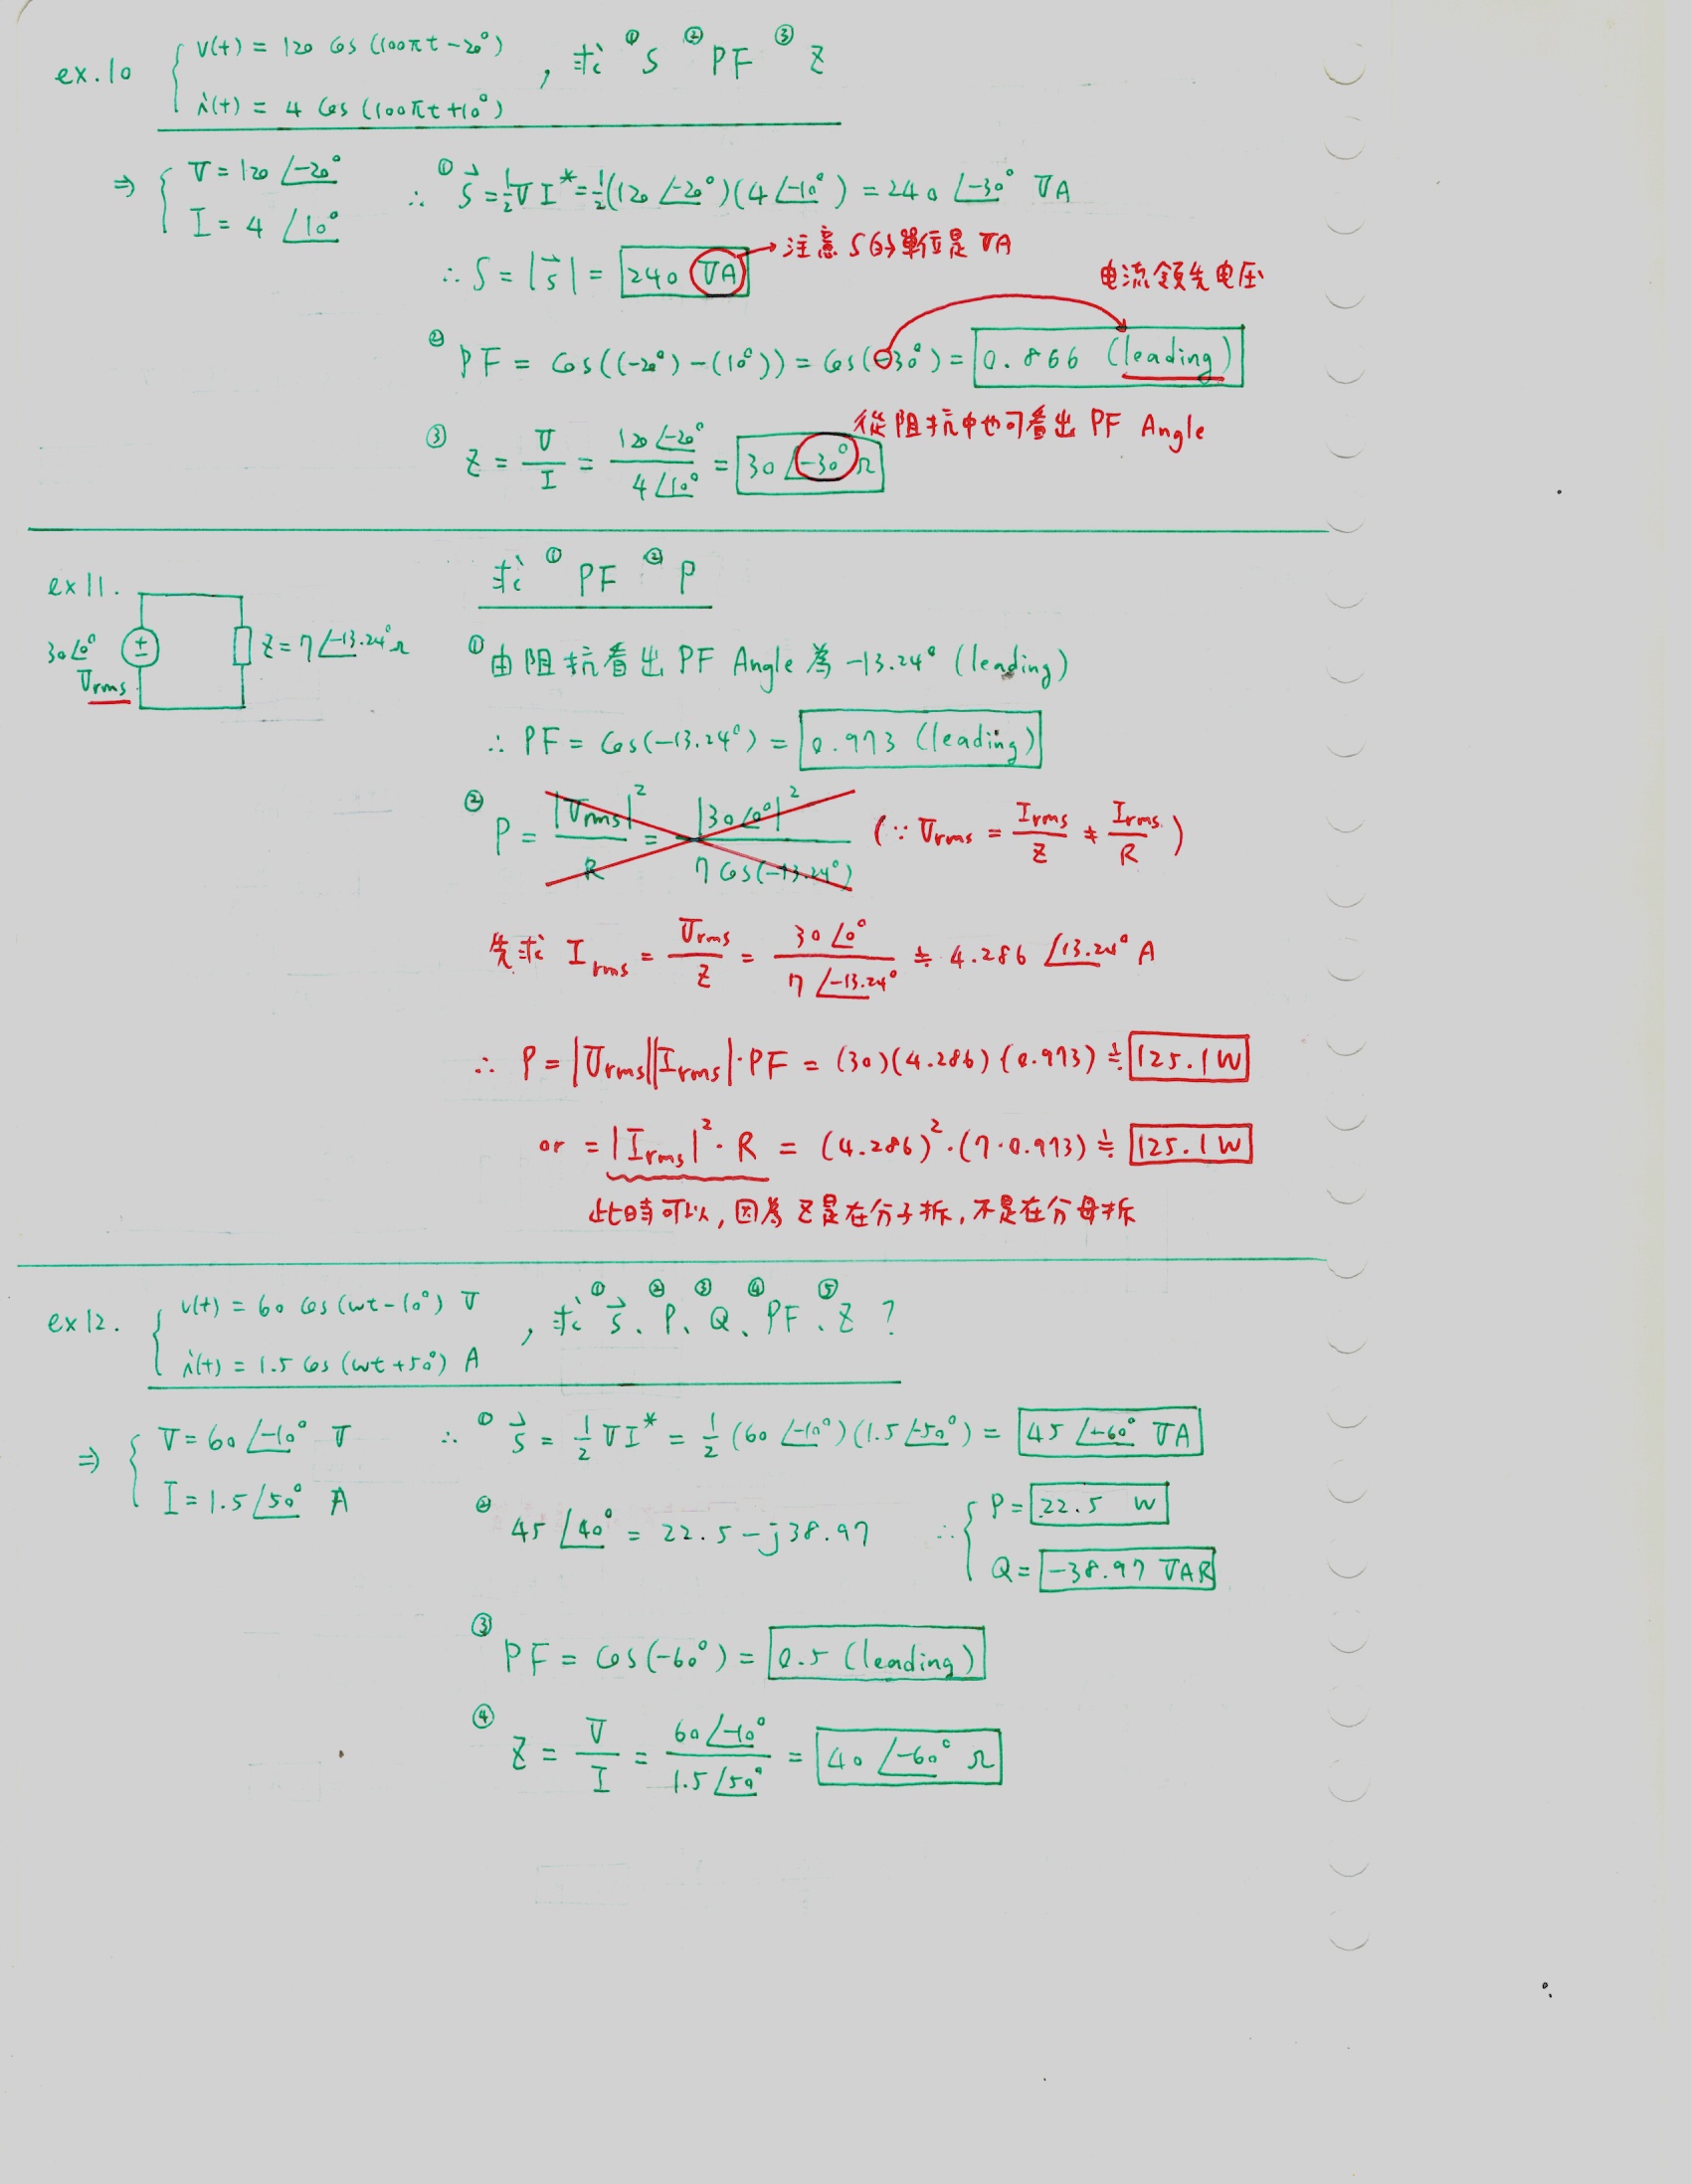 ex.10 { v(t) = 120 cos (100πt-20°) , 求 ① S ② PF ③ Z
i(t) = 4 cos (100πt+10°)
⇒ { V = 120 ∠-20° ∴ ① S⃗ = ½VI* = ½(120∠-20°)(4∠-10°) = 240 ∠-30° VA
I = 4 ∠10°
∴ S = |S⃗| = 240 VA → 注意 S的單位是 VA
电流領先电压
② PF = cos((-20°)-(10°)) = cos(-30°) = 0.866 (leading)
從阻抗中也可看出 PF Angle
③ Z = V/I = 120∠-20° / 4∠10° = 30∠-30° Ω
ex 11. 求 ① PF ② P
30∠0° Vrms ± Z = 7∠-13.24° Ω
① 由阻抗看出 PF Angle 為 -13.24° (leading)
∴ PF = cos(-13.24°) = 0.973 (leading)
② P = |Vrms|² / R = |30∠0°|² / 7 cos(-13.24°) (∵ Vrms = Irms/Z ≠ Irms/R)
先求 Irms = Vrms/Z = 30∠0° / 7∠-13.24° ≒ 4.286 ∠13.24° A
∴ P = |Vrms||Irms|·PF = (30)(4.286)(0.973) ≒ 125.1 W
or = |Irms|²·R = (4.286)²·(7·0.973) ≒ 125.1 W
此時可以, 因為 Z是在分子拆, 不是在分母拆
ex 12. { v(t) = 60 cos (wt-10°) V , 求 ① S⃗、② P、③ Q、④ PF、⑤ Z ?
i(t) = 1.5 cos (wt+50°) A
⇒ { V = 60∠-10° V ∴ ① S⃗ = ½ VI* = ½ (60∠-10°)(1.5∠-50°) = 45∠-60° VA
I = 1.5∠50° A
② 45∠40° = 22.5 - j38.97 ∴ { P = 22.5 W
Q = -38.97 VAR
③ PF = cos(-60°) = 0.5 (leading)
④ Z = V/I = 60∠-10° / 1.5∠50° = 40∠-60° Ω